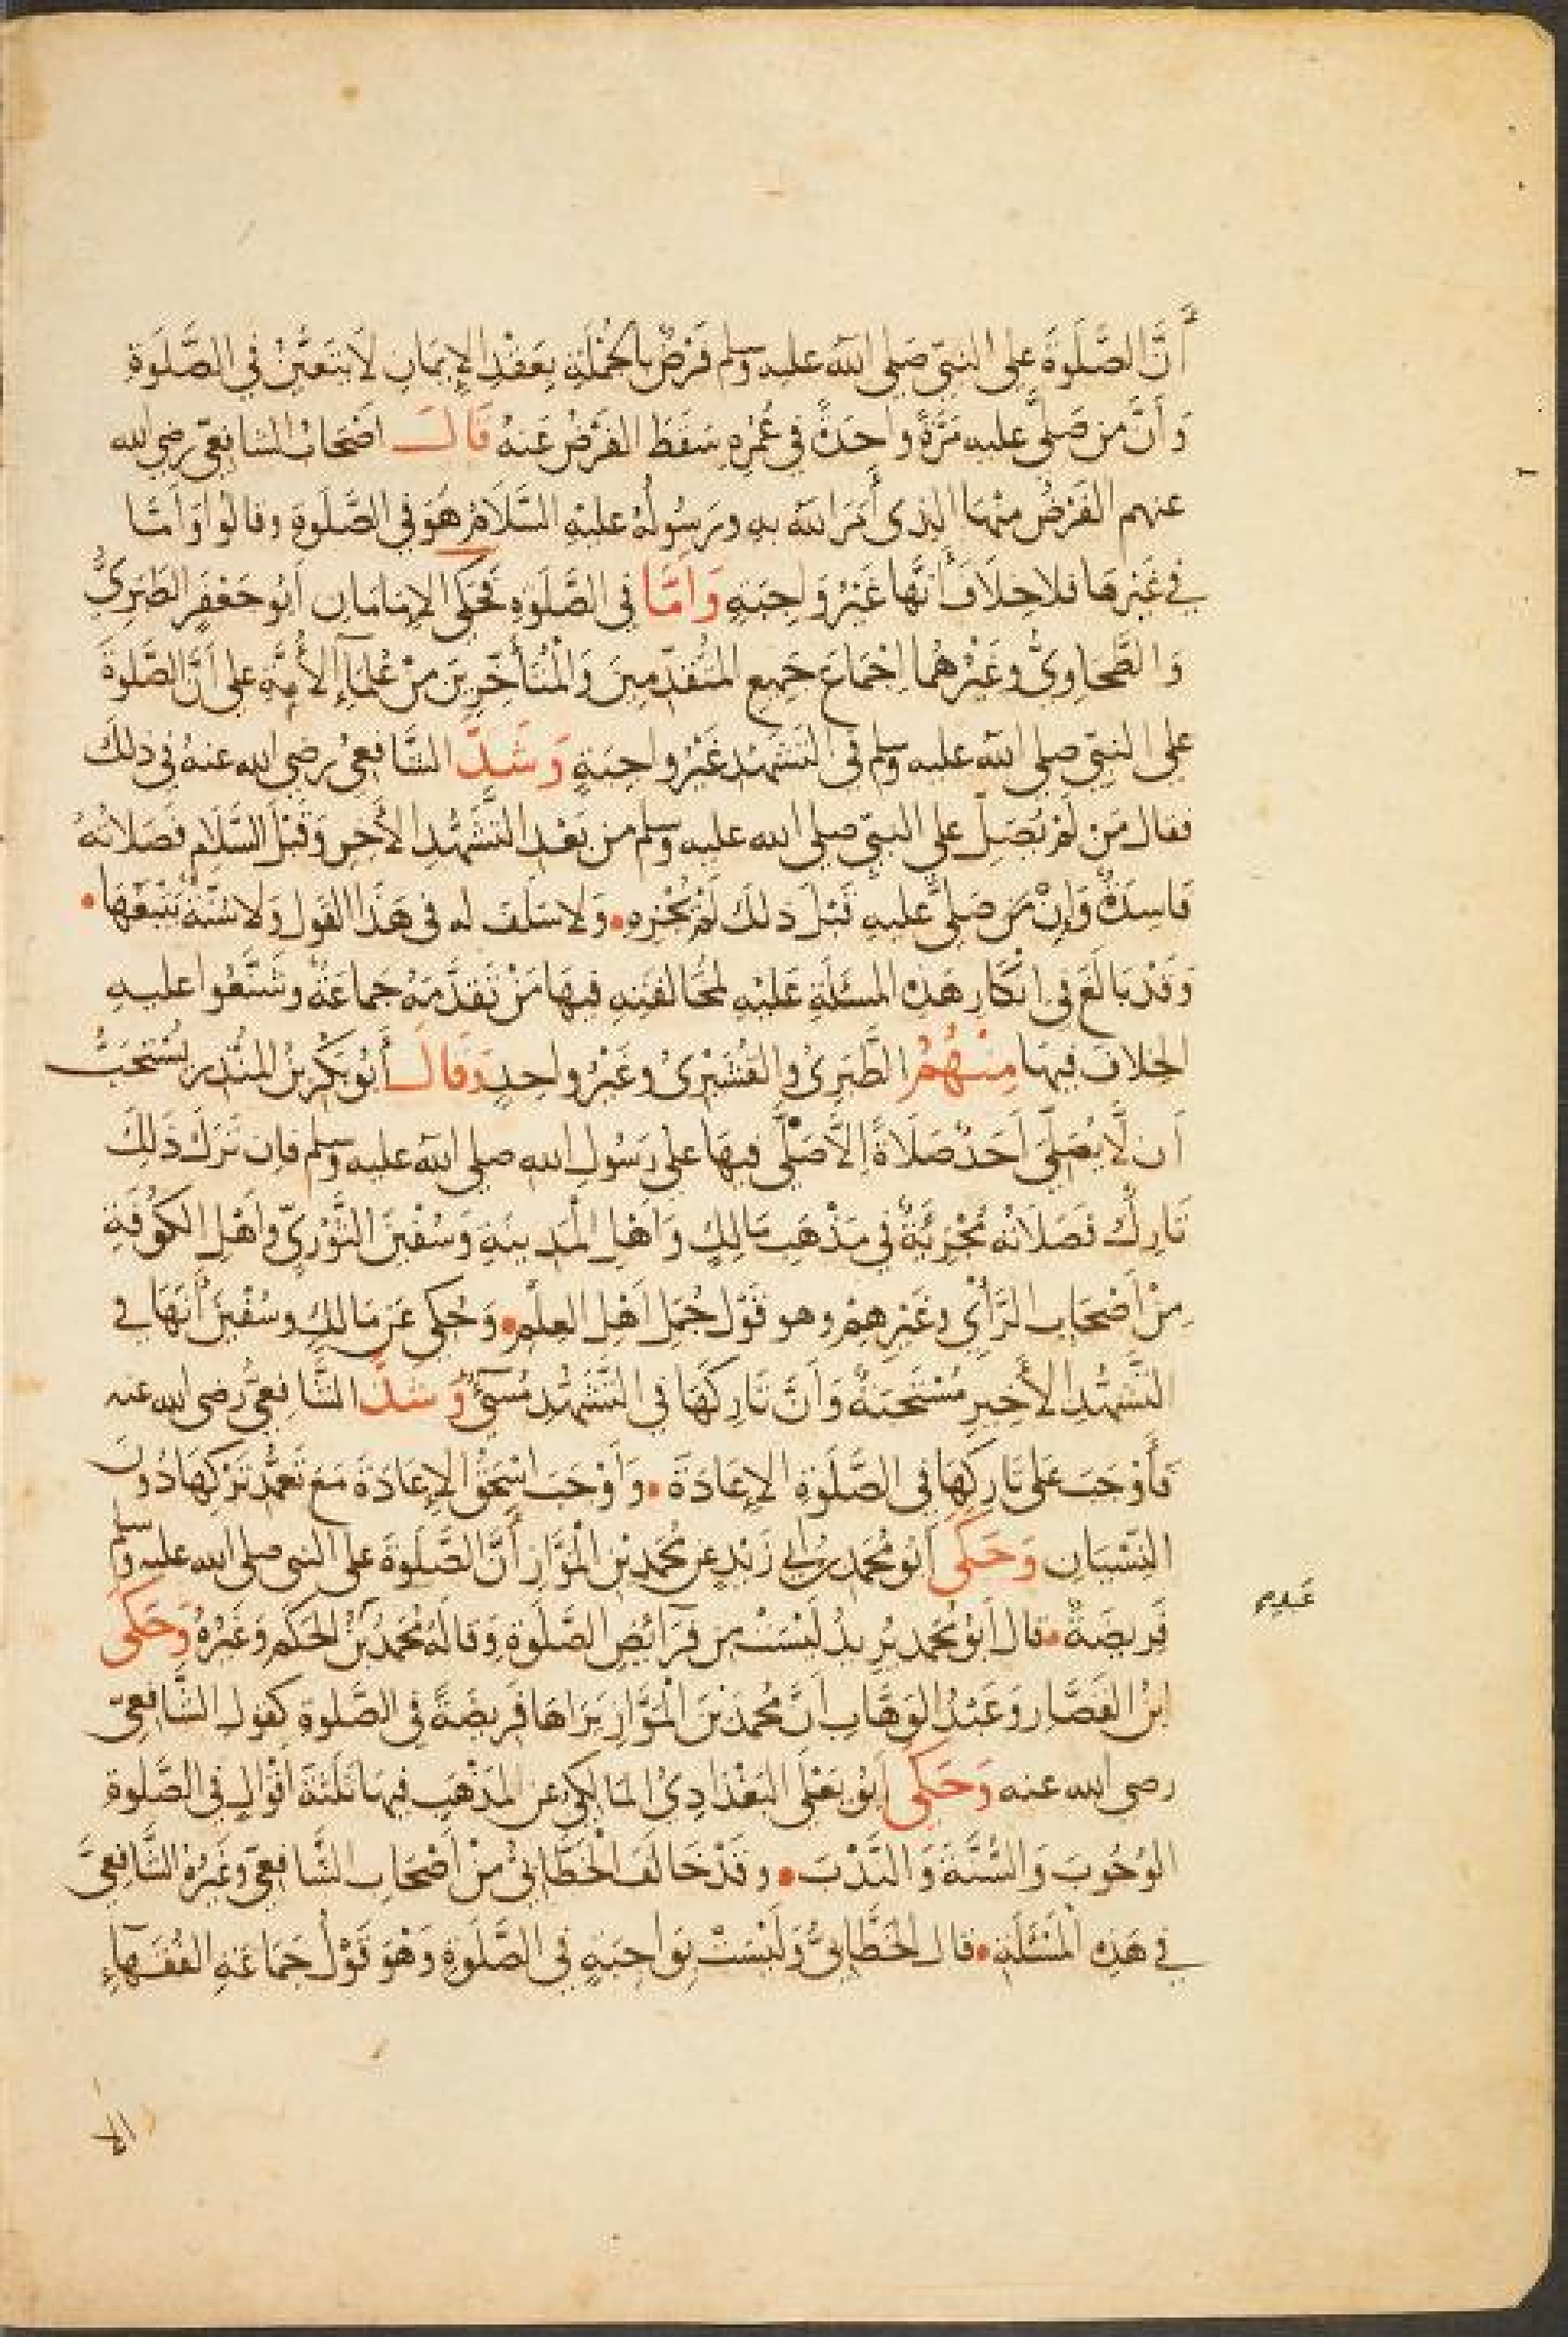 أَنَّ الصَّلَوةَ على النبيّ صَلى الله عليه وسلم فَرْضٌ بالجُمْلَةِ بِعَقْدِ الإيمانِ لَا يَتَعَيَّنُ فِي الصَّلَوةِ
وَأَنَّ مَن صَلَّى عليه مَرَّةً وَاحِدَةً في عُمْرِهِ سَقَطَ الفَرْضُ عَنهُ قَالَ اَصْحَابُ الشافعيّ رضي الله
عنهم الفَرْضُ مِنْهَا الذى أَمَرَ اللهُ بِهِ وَرَسُولُهُ عليهِ السَّلَامُ هُوَ فِي الصَّلَوةِ وقالوا وَاَمَّا
في غَيْرِهَا فلا خِلَافَ أَنَّهَا غَيْرُ وَاجِبَةٍ وَاَمَّا فِي الصَّلَوةِ فَحَكَى الإمَامَانِ أَبُو جَعْفَرٍ الطَبَرِىُّ
وَالطَّحَاوِىُّ وغَيْرُهُما اِجْمَاعَ جَمِيعِ المُتَقَدِّمِينَ وَالْمُتَأَخِّرِينَ مِنْ عُلَمَآءِ الأُمَّةِ على أَنَّ الصَّلَوةَ
على النبيّ صلى الله عليه وسلم في التَشَهُّدِ غَيْرُ وَاجِبَةٍ وَشَذَّ الشَّافِعِىُّ رضي الله عنهُ فى ذلِكَ
فقال مَن لَمْ يُصَلِّ على النبيّ صلى الله عليه وسلم من بَعْدِ التَّشَهُّدِ الأَخِرِ وَقَبْلَ السَّلَامِ فَصَلَاتُهُ
فَاسِدَةٌ وَإِنْ مَن صَلَّى عليهِ قَبْلَ ذلكَ لَمْ تُجْزِهِ • وَلا سَلَفَ له فى هَذَا القول وَلا سُنَّةٌ يَتَّبِعُهَا •
وَقَدْ بَالَغَ في اِنْكَارِ هَذِهِ المسئَلَةِ عَلَيْهِ لمُخَالَفَتِهِ فِيهَا مَنْ تَقَدَّمَهُ جَمَاعَةٌ وشَنَّعُوا عليهِ
الخِلافَ فِيهَا مِنْهُمُ الطَّبَرِىُّ والقُشَيْرِىُّ وغَيْرُ واحِدٍ وَقَالَ أَبُو بَكْرِ بنُ المُنْذِرِ يُسْتَحَبُّ
اَن لَّا يُصَلِّىَ اَحَدٌ صَلَاةً اِلَّا صَلَّى فِيهَا على رَسُولِ اللهِ صلى الله عليه وسلم فإن تَرَكَ ذَلِكَ
تَارِكٌ فَصَلَاتُهُ مُجْزِئَةٌ فِي مَذْهَبِ مَالِكٍ وَاَهْلِ الْمَدِينَةِ وَسُفْيَنَ الثَّوْرِيِّ وأَهْلِ الكُوْفَةِ
مِنْ أَصْحَابِ الرَّأْيِ وغَيْرِهِمْ وهو قَوْلُ جُمَلِ اَهْلِ العِلْمِ • وَحُكِىَ عَن مَالِكٍ وسُفْيَنَ أَنَّهَا في
التَّشَهُّدِ الأَخِيرِ مُسْتَحَبَّةٌ وَاَنَّ تَارِكَهَا فِي التَّشَهُّدِ مُسِىٓءٌ وَشَذَّ الشَّافِعِىُّ رضى الله عنه
فَأَوْجَبَ عَلى تَارِكِهَا فِي الصَّلَوةِ الإِعَادَةَ • وَأَوْجَبَ اسْحَقُ الإِعَادَةَ مَعَ تَعَمُّدِ تَرْكِهَا دُونَ
النِّسْيَانِ وَحَكَى اَبُو مُحَمد بنُ أبي زَيْدٍ عن مُحَمدِ بْنِ الْمَوَّازِ أَنَّ الصَّلَوةَ على النبي صلى الله عليه وسلم
فَرِيضَةٌ • قال اَبُو مُحَمد يُرِيدُ لَيْسَتْ مِن فَرَآئِضِ الصَّلَوةِ وَقَالَهُ مُحَمدُ بْنُ الحَكَمِ وَغَيْرُهُ وَحَكَى
عَبدِ م
ابْنُ القَصَّارِ وَعَبْدُ الوَهَّابِ اَنَّ مُحَمدَ بْنَ الْمَوَّازِ يَرَاهَا فَرِيضَةً فِي الصَّلوةِ كَقَولِ الشَّافِعيّ
رضى الله عنه وَحَكَى اَبُو يَعْلَى البَغْدَادِىُّ المَالِكِىُّ عن المَذْهَبِ فِيهَا ثَلَثَةَ اَقْوَالٍ فِي الصَّلوةِ
الوُجُوبَ وَالسُّنَّةَ وَالنَّدْبَ • وقَدْ خَالَفَ الْخَطَّابِىُّ مِنْ اَصْحَابِ الشَّافِعيّ وغَيْرُهُ الشَّافِعىَّ
في هَذِهِ الْمَسْئَلَةِ • قال الخَطَّابِىُّ وَلَيْسَتْ بِوَاجِبَةٍ في الصَّلَوةِ وَهْوَ قَوْلُ جَمَاعَةِ الفُقَهَآءِ
الا